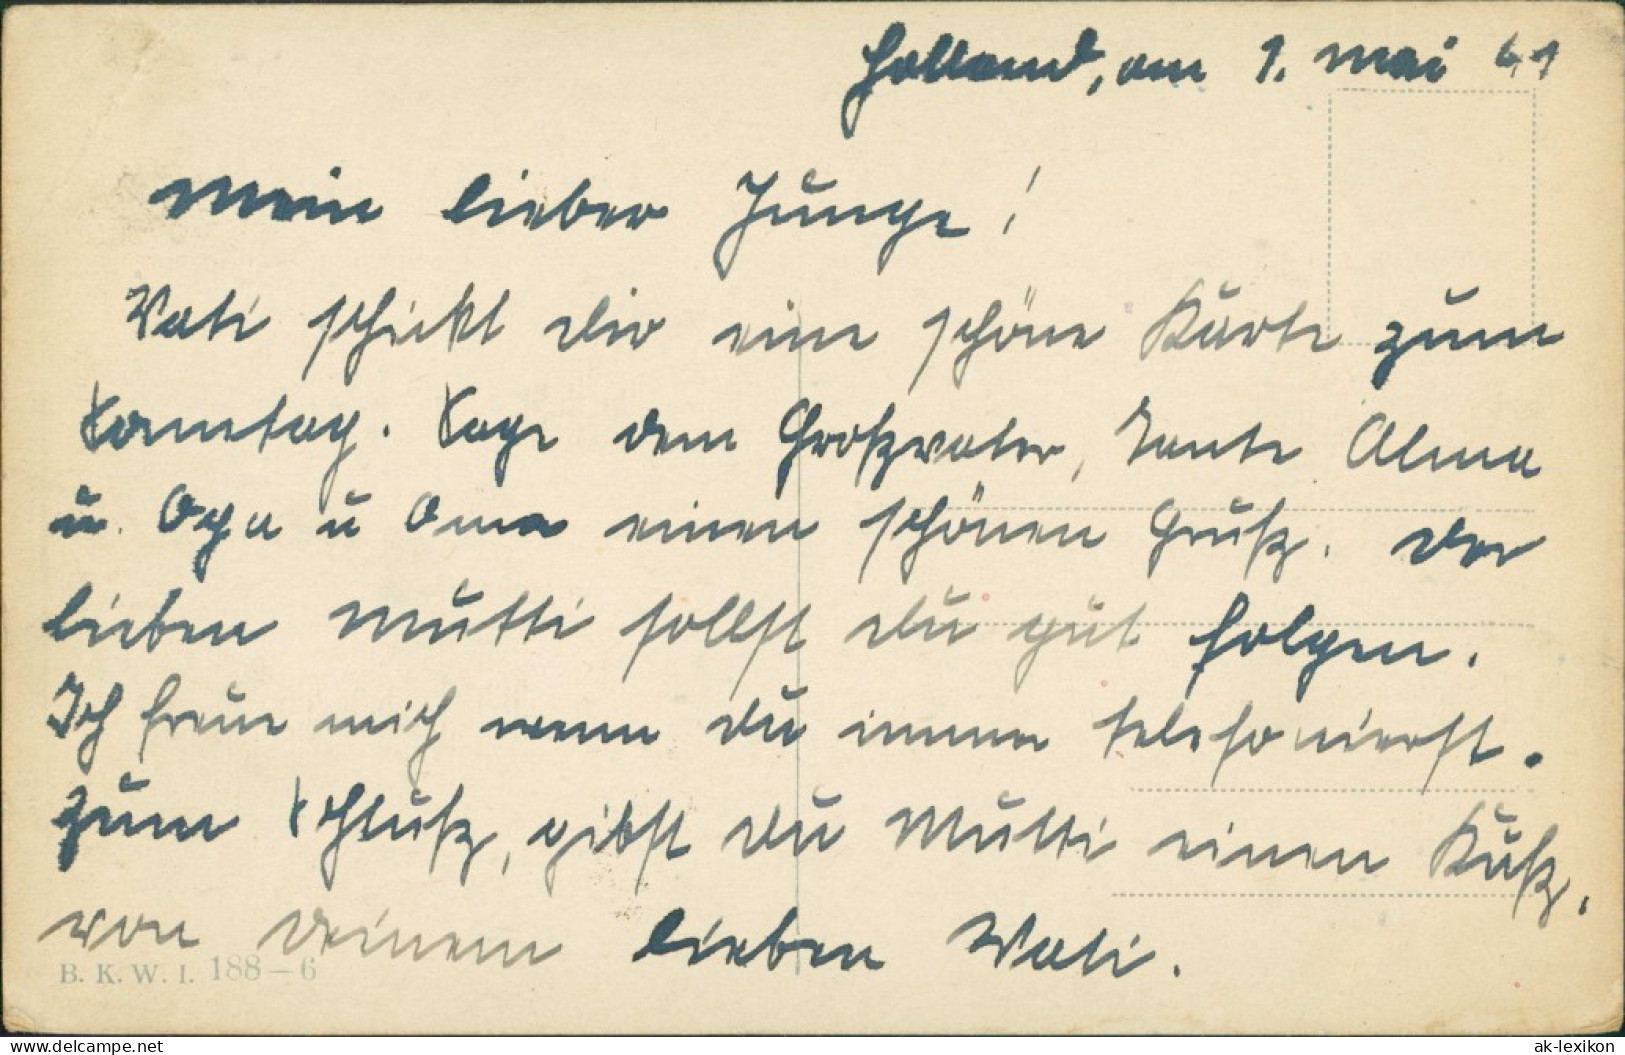 Holland, am 1. Mai 41
Mein lieber Junge!
Vati schickt dir eine schöne Karte zum
Sonntag. Sage dem Großvater, Tante Alma
u. Opa u Oma einen schönen Gruß. Der
lieben Mutti sollst du gut folgen.
Ich freue mich wenn du immer telefonierst.
Zum Schluß, gibst du Mutti einen Kuß,
von deinem lieben Vati.
B. K. W. I. 188-6
www.delcampe.net
ak-lexikon